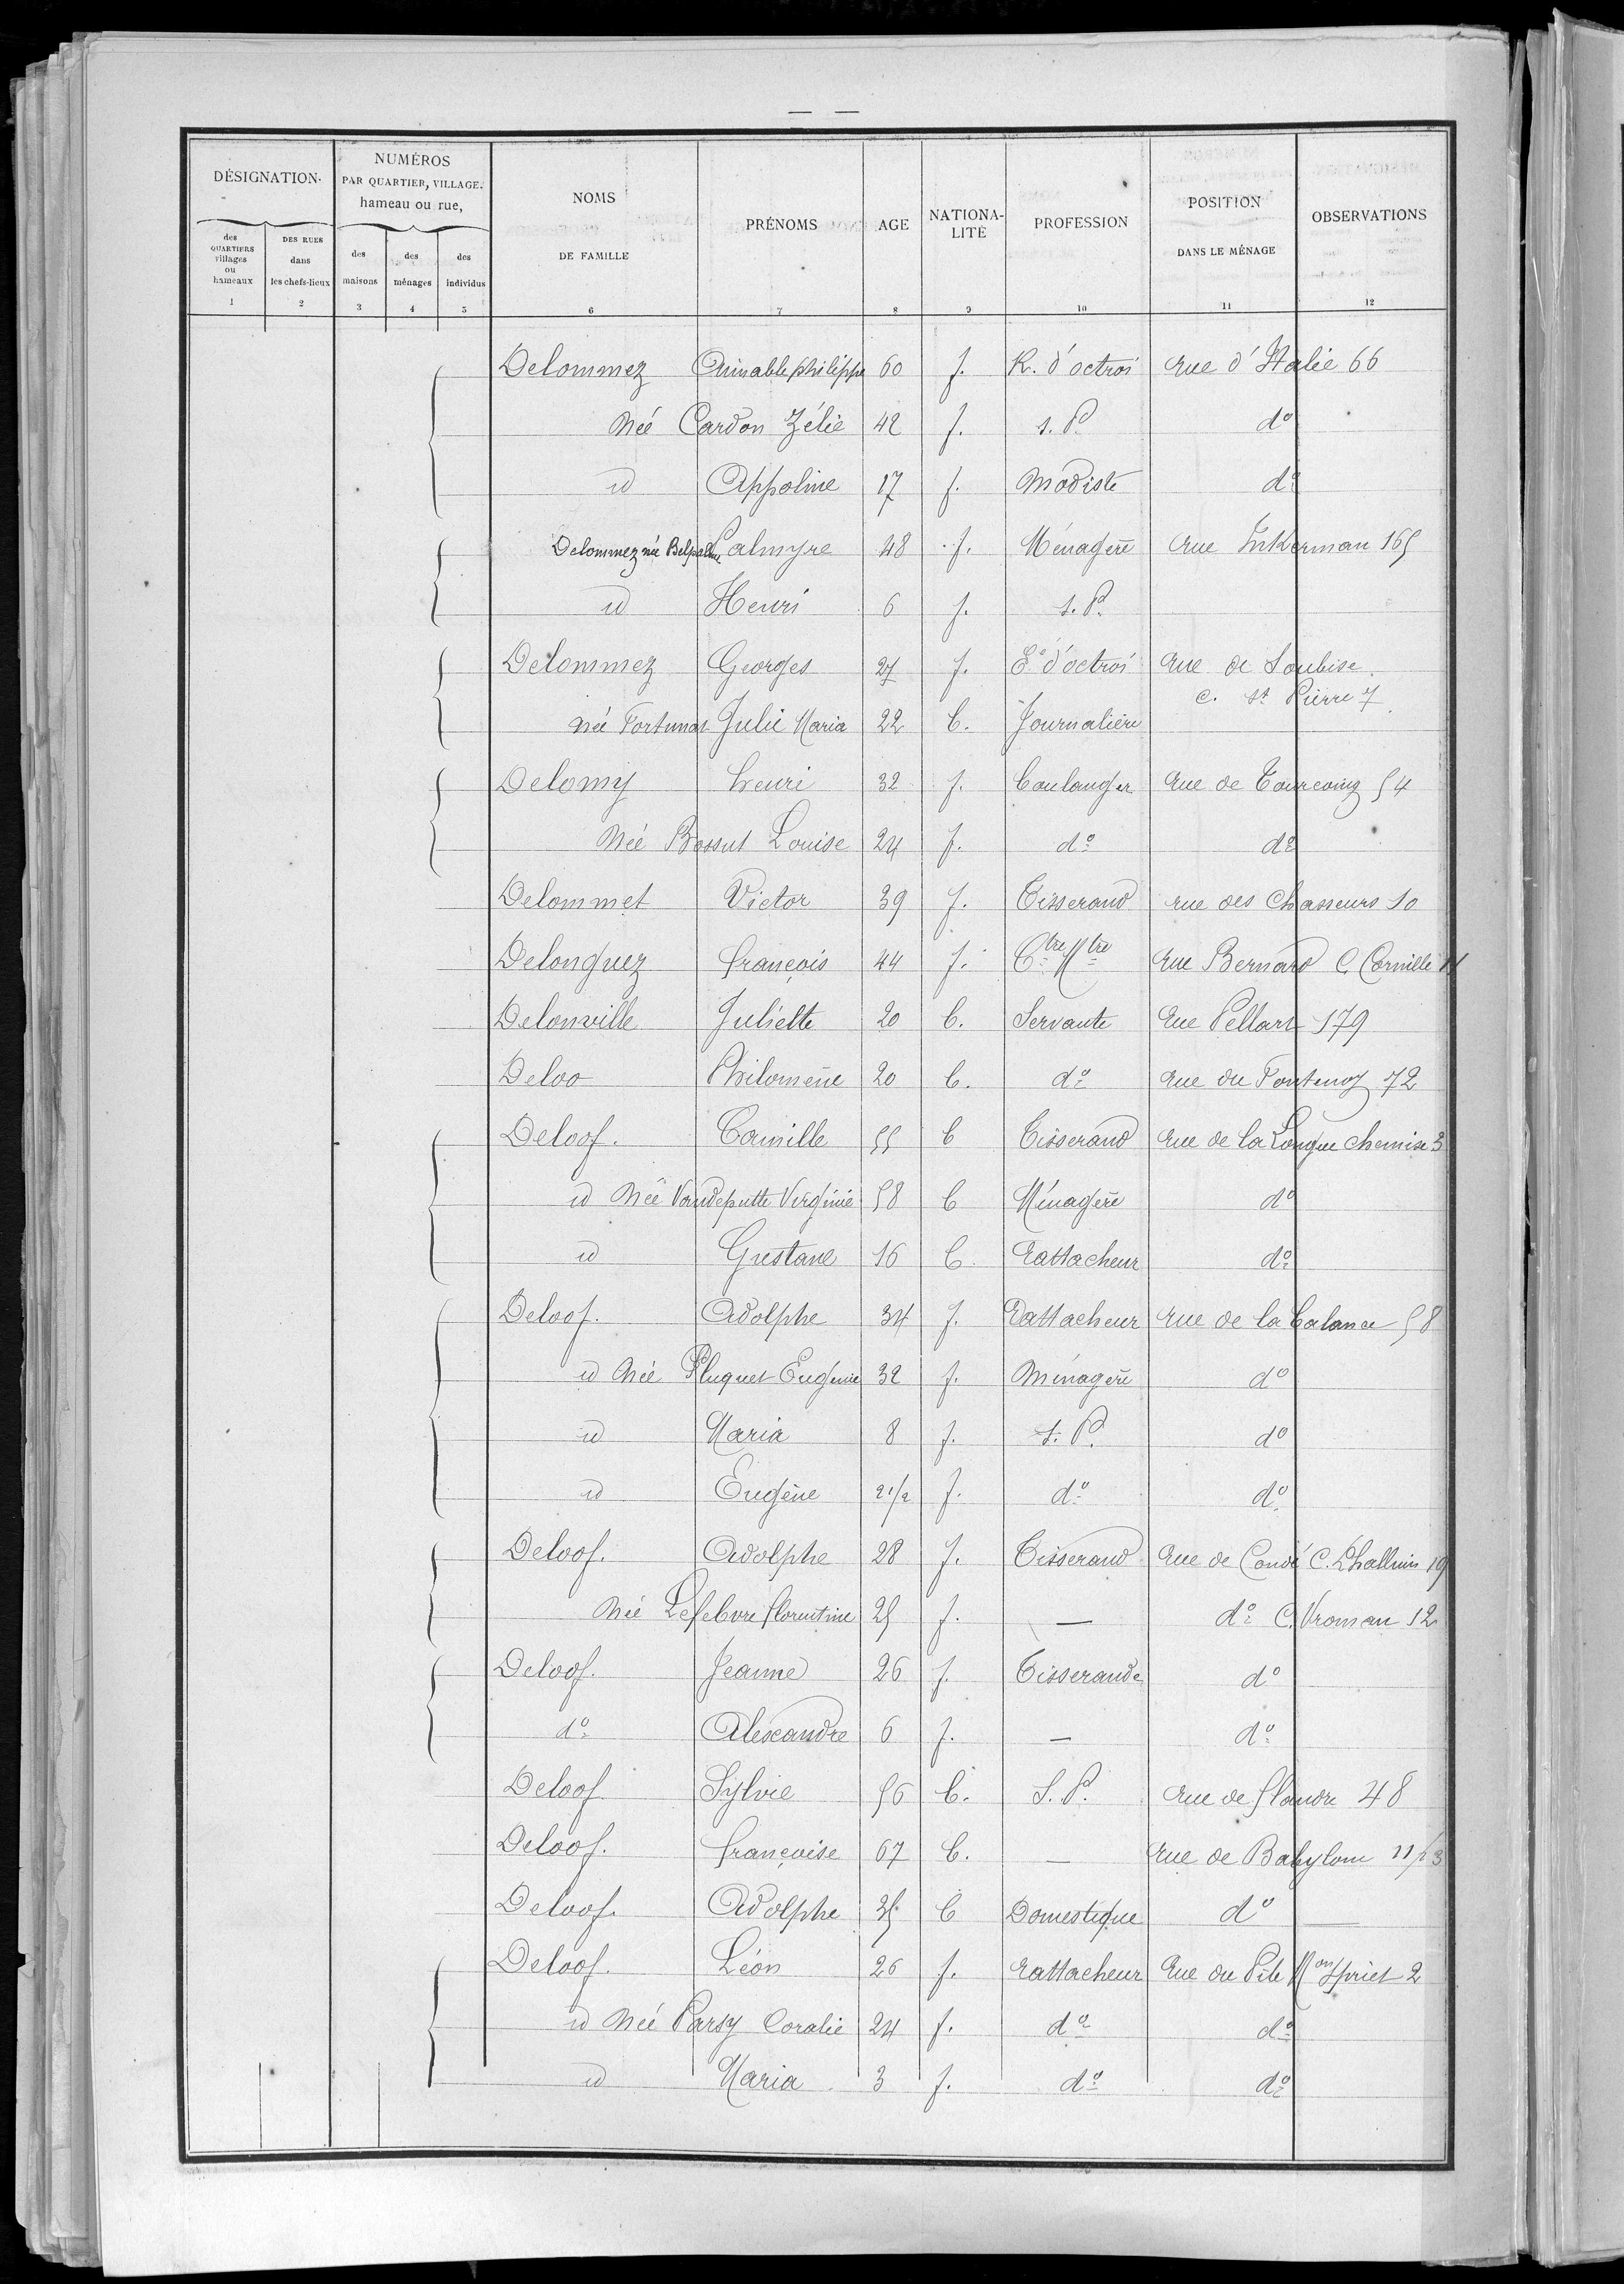 DÉSIGNATION.
NUMÉROS
PAR QUARTIER, VILLAGE.
hameau ou rue,
des QUARTIERS villages ou hameaux
DES RUES dans les chefs-lieux
des maisons
des ménages
des individus
NOMS
DE FAMILLE
PRÉNOMS
AGE
NATIONA-
LITÉ
PROFESSION
POSITION
DANS LE MÉNAGE
OBSERVATIONS
1 2 3 4 5 6 7 8 9 10 11 12
Delommez Aimable philippe 60 f. R. d'octroi rue d'Italie 66
Née Cardon Zélie 42 f. s. P. d°
id Appoline 17 f. Modiste d°
Delommez née Belpalme Palmyre 48 f. Ménagère rue Inkerman 165
id Henri 6 f. s. P.
Delommez Georges 27 f. E° d'octroi rue de Soubise
c. St Pierre 7
née Fortunat Julie Maria 22 b. Journalière
Delomy henri 32 f. boulanger rue de Tourcoing 54
Née Bossut Louise 24 f. d° d°
Delommet Victor 39 f. Tisserand rue des Chasseurs 10
Delonguez françois 44 f. Ctre Mtre rue Bernard C. Cornille 11
Delonville Juliette 20 b. Servante rue Pellart 179
Deloo Philomène 20 b. d° rue du Fontenoy 72
Deloof. Camille 55 b Tisserand rue de la Longue chemise 3
id Née Vandeputte Virginie 58 b Ménagère d°
id Gustave 16 b. rattacheur d°
Deloof. Adolphe 34 f. rattacheur rue de la balance 58
id Née Pluquet Eugenie 32 f. Ménagère d°
id Maria 8 f. s. P. d°
id Eugène 2 1/2 f. d° d°
Deloof. Adolphe 28 f. Tisserand rue de Condé C. Lhalluin 19
Née Lefebvre florentine 25 f. — d° C. Vroman 12
Deloof. Jeanne 26 f. Tisserande d°
d° Alexandre 6 f. — d°
Deloof Sylvie 56 b. S. P. rue de flandre 48
Deloof. françoise 67 b. — rue de Babylone 11/23
Deloof. Adolphe 35 b Domestique d° —
Deloof. Léon 26 f. rattacheur rue du Pile Mon Spriet 2
id Née Parsy Coralie 24 f. d° d°
id Maria 3 f. d° d°